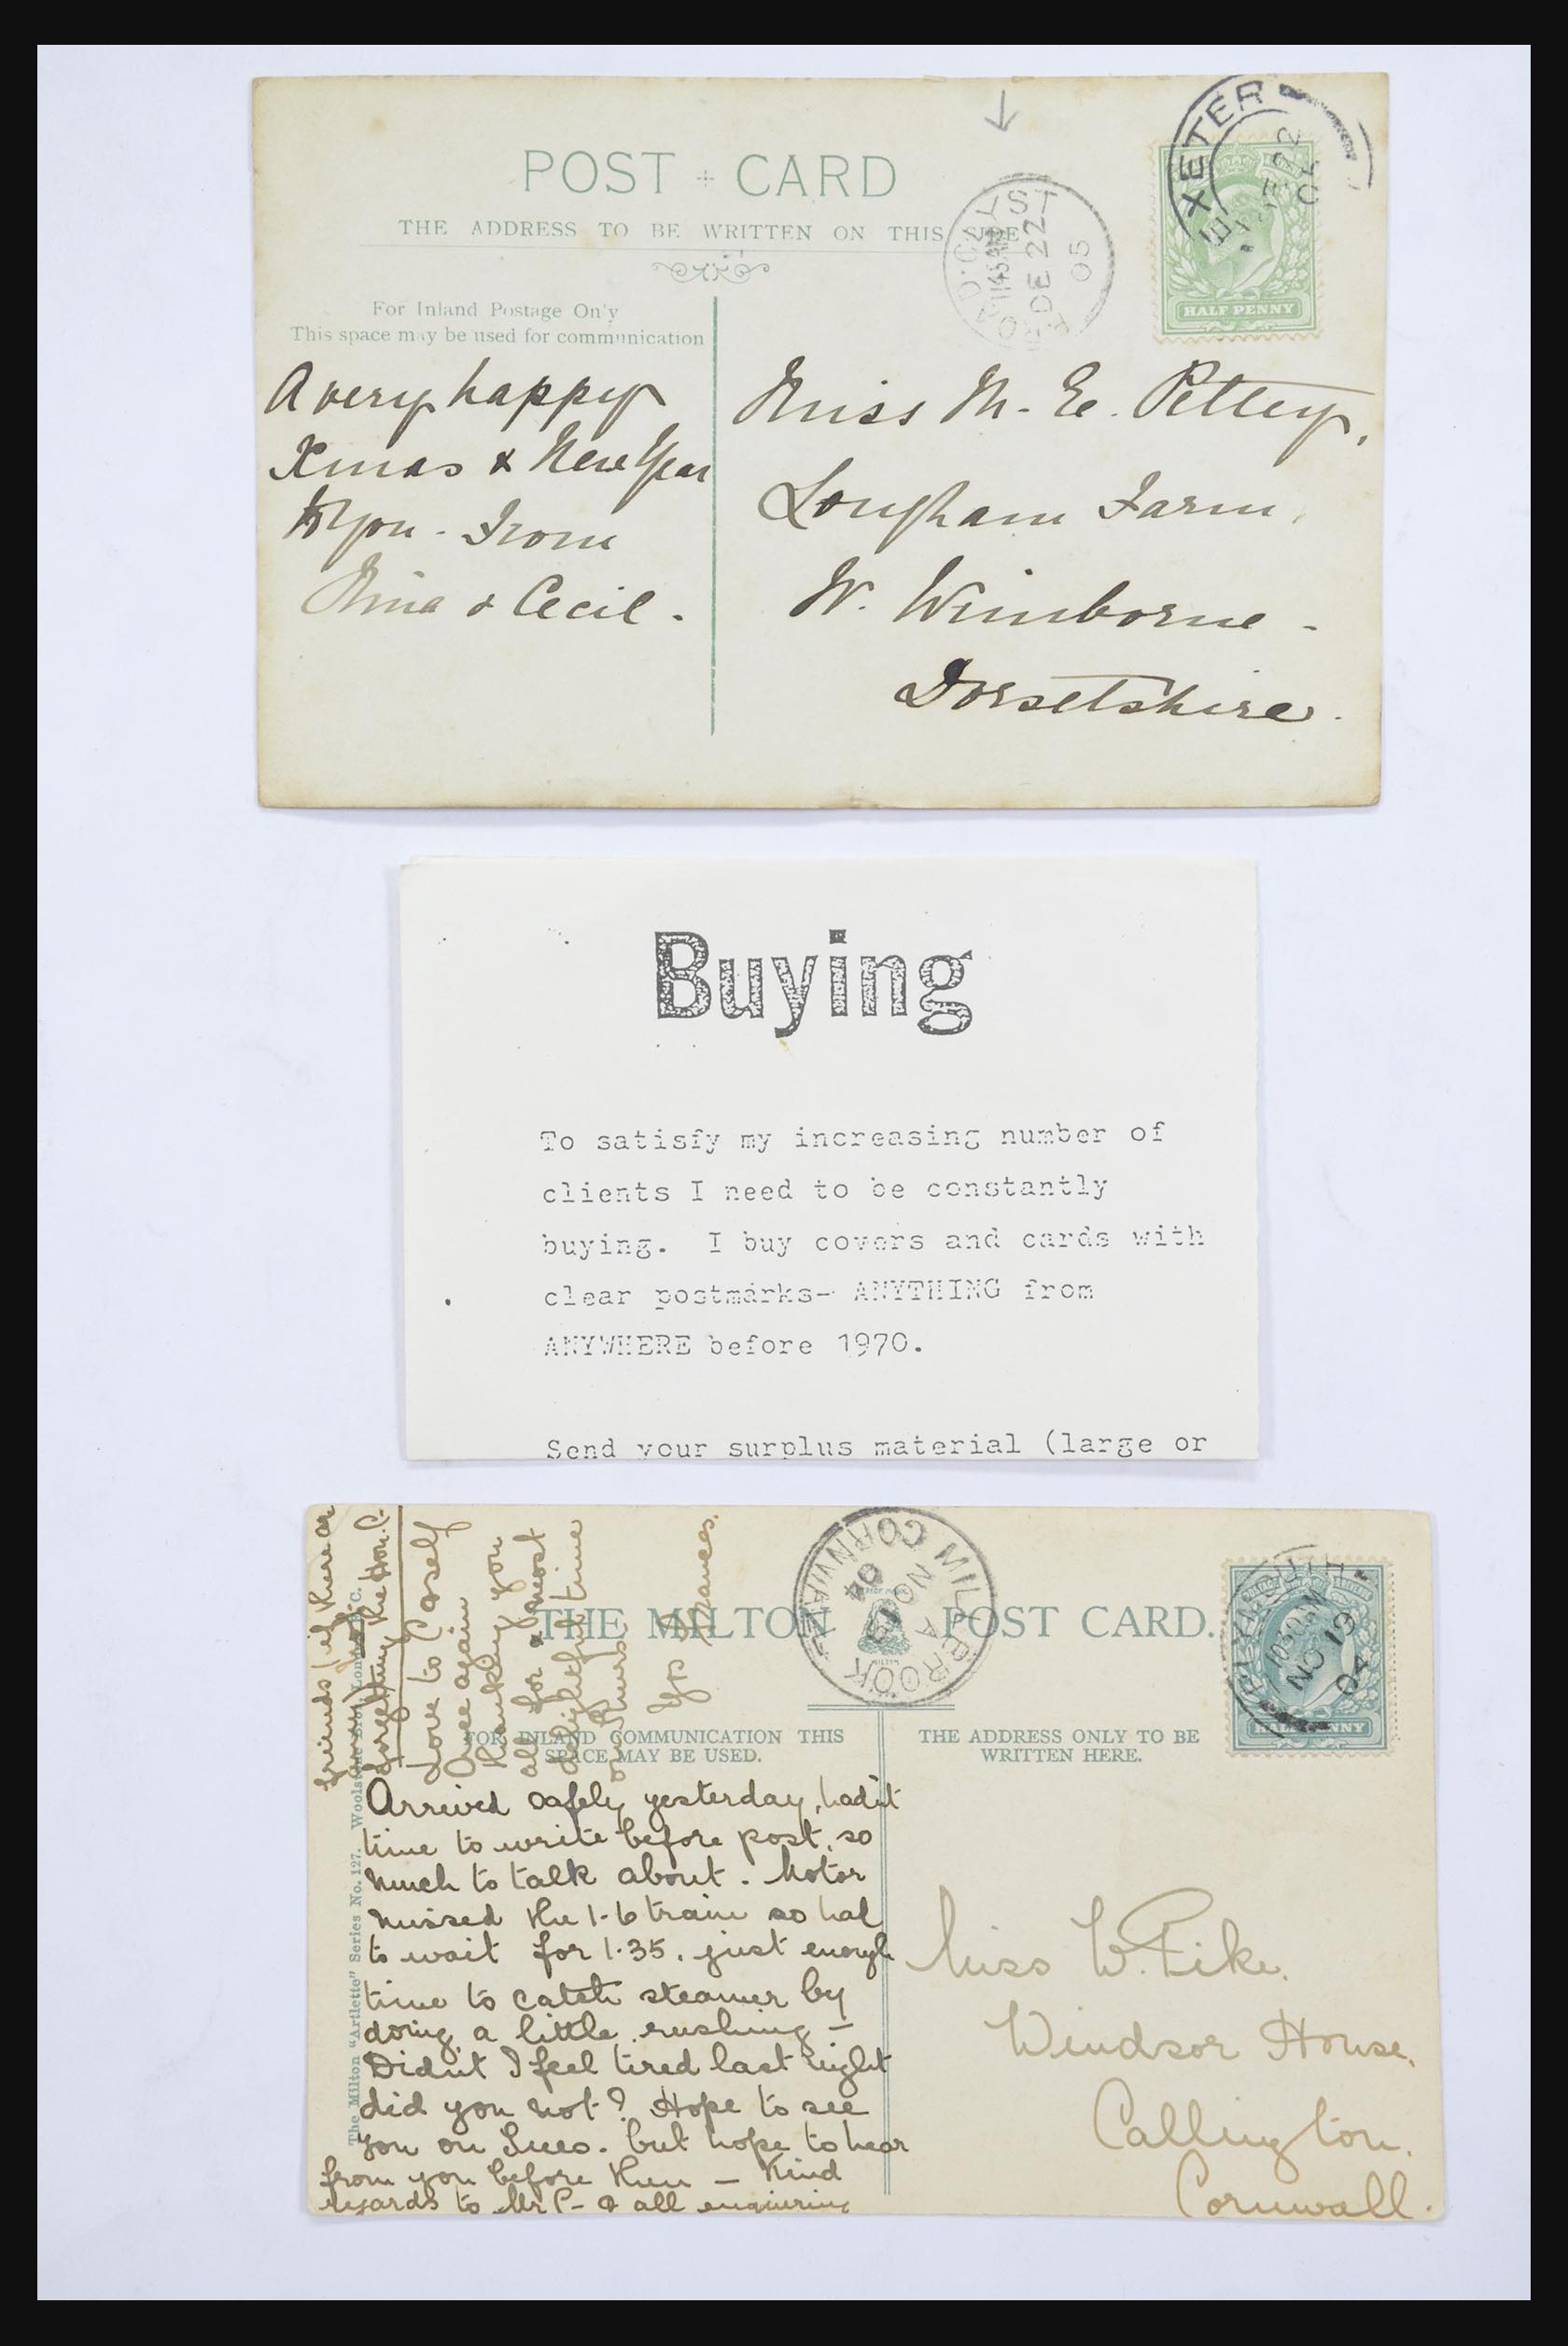 POST + CARD
THE ADDRESS TO BE WRITTEN ON THIS SIDE
For Inland Postage Only
This space may be used for communication
BROAD-CLYST
11 45 AM
DE 22
05
EXETER
DE 22
05
HALF PENNY
A very happy
Xmas & New Year
to you - From
Nina & Cecil.
Miss M. E. Pettey,
Longham Farm,
W. Wimborne -
Dorsetshire.
Buying
To satisfy my increasing number of
clients I need to be constantly
buying. I buy covers and cards with
clear postmarks- ANYTHING from
ANYWHERE before 1970.
Send your surplus material (large or
THE MILTON POST CARD.
MILLBROOK CORNWALL
A
NO 19
04
PLYMOUTH
NO 19
04
HALF PENNY
FOR INLAND COMMUNICATION THIS
SPACE MAY BE USED.
THE ADDRESS ONLY TO BE
WRITTEN HERE.
The Milton "Artlette" Series No. 127. Woolstone Bros., London, E.C.
Arrived safely yesterday, hadn't
time to write before post, so
much to talk about. Motor
missed the 1-6 train so had
to wait for 1.35, just enough
time to catch steamer by
doing a little rushing -
Didn't I feel tired last night
did you not? Hope to see
you on Tues. but hope to hear
from you before then - Kind
regards to Mr P- & all enquiring
friends (if there are
any) not
forgetting the Hon. C.
Love to
& see again
thanking you
all for a most
delightful time
Yrs Frances.
Miss W. Pike.
Windsor House,
Callington.
Cornwall.